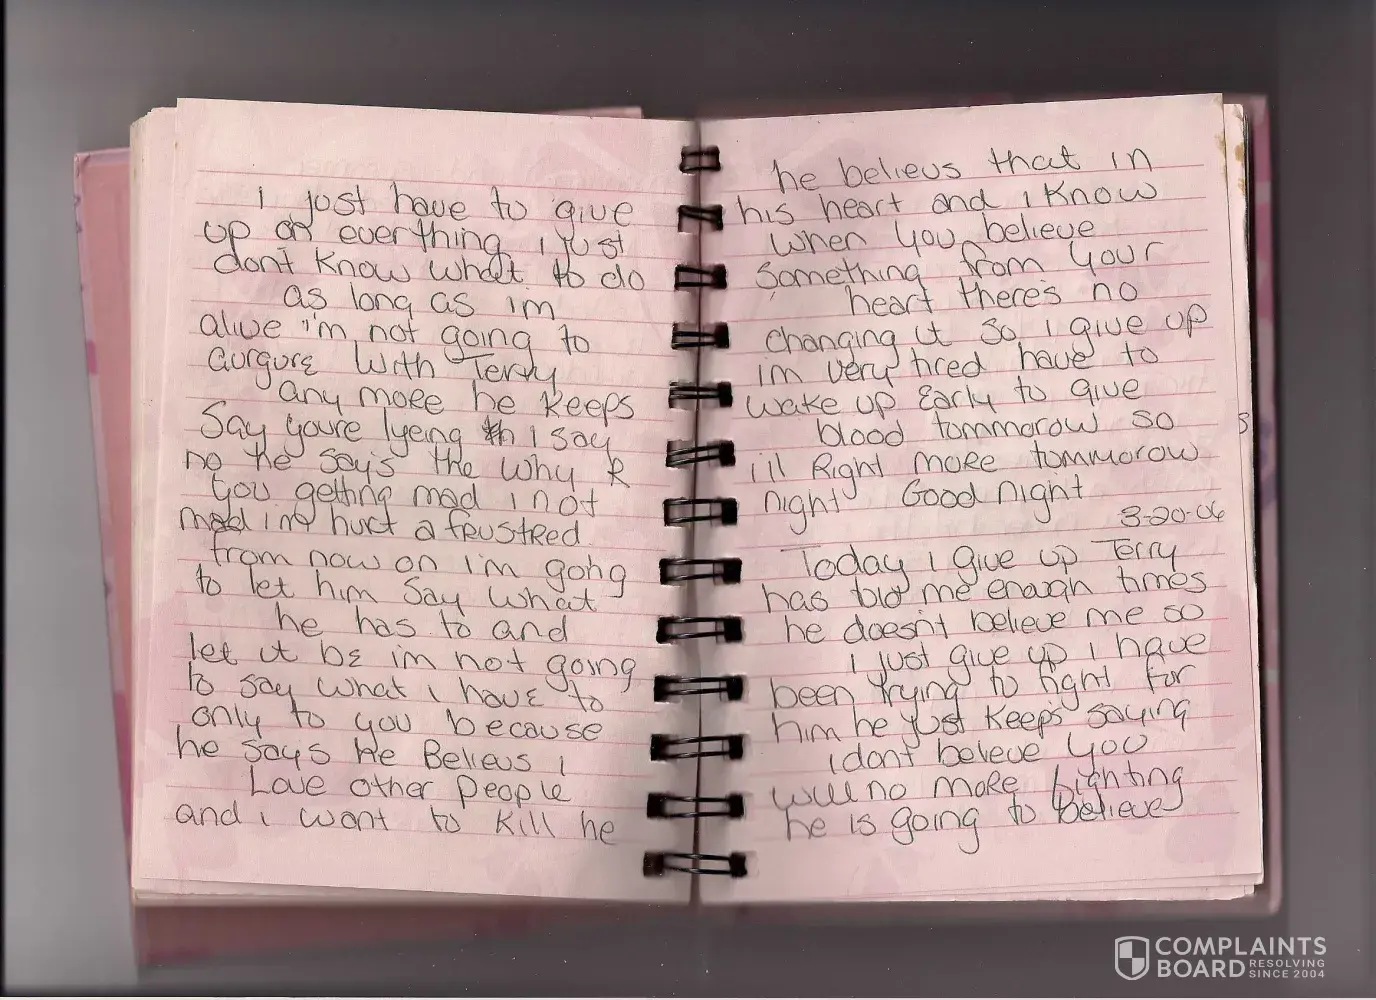 I just have to give
up on everthing i just
dont know what to do
as long as im
alive i'm not going to
aurgure with Terry
any more he keeps
Say youre lyeing th i say
no he say's the why R
you getting mad i not
mad im hurt a frustred
from now on I'm going
to let him say what
he has to and
let it be im not going
to say what i have to
only to you because
he says He Believs i
Love other people
and i want to kill he
he believs that in
his heart and i know
when you believe
something from your
heart there's no
changing it so i give up
im very tired have to
wake up Early to give
blood tommorow so
i'll Right more tommorow
night Good night
3-20-06
Today i give up Terry
has told me enough times
he doesn't believe me so
i just give up i have
been trying to fight for
him he just keeps saying
i dont believe you
will no more fighting
he is going to believe
COMPLAINTS
BOARD RESOLVING
SINCE 2004